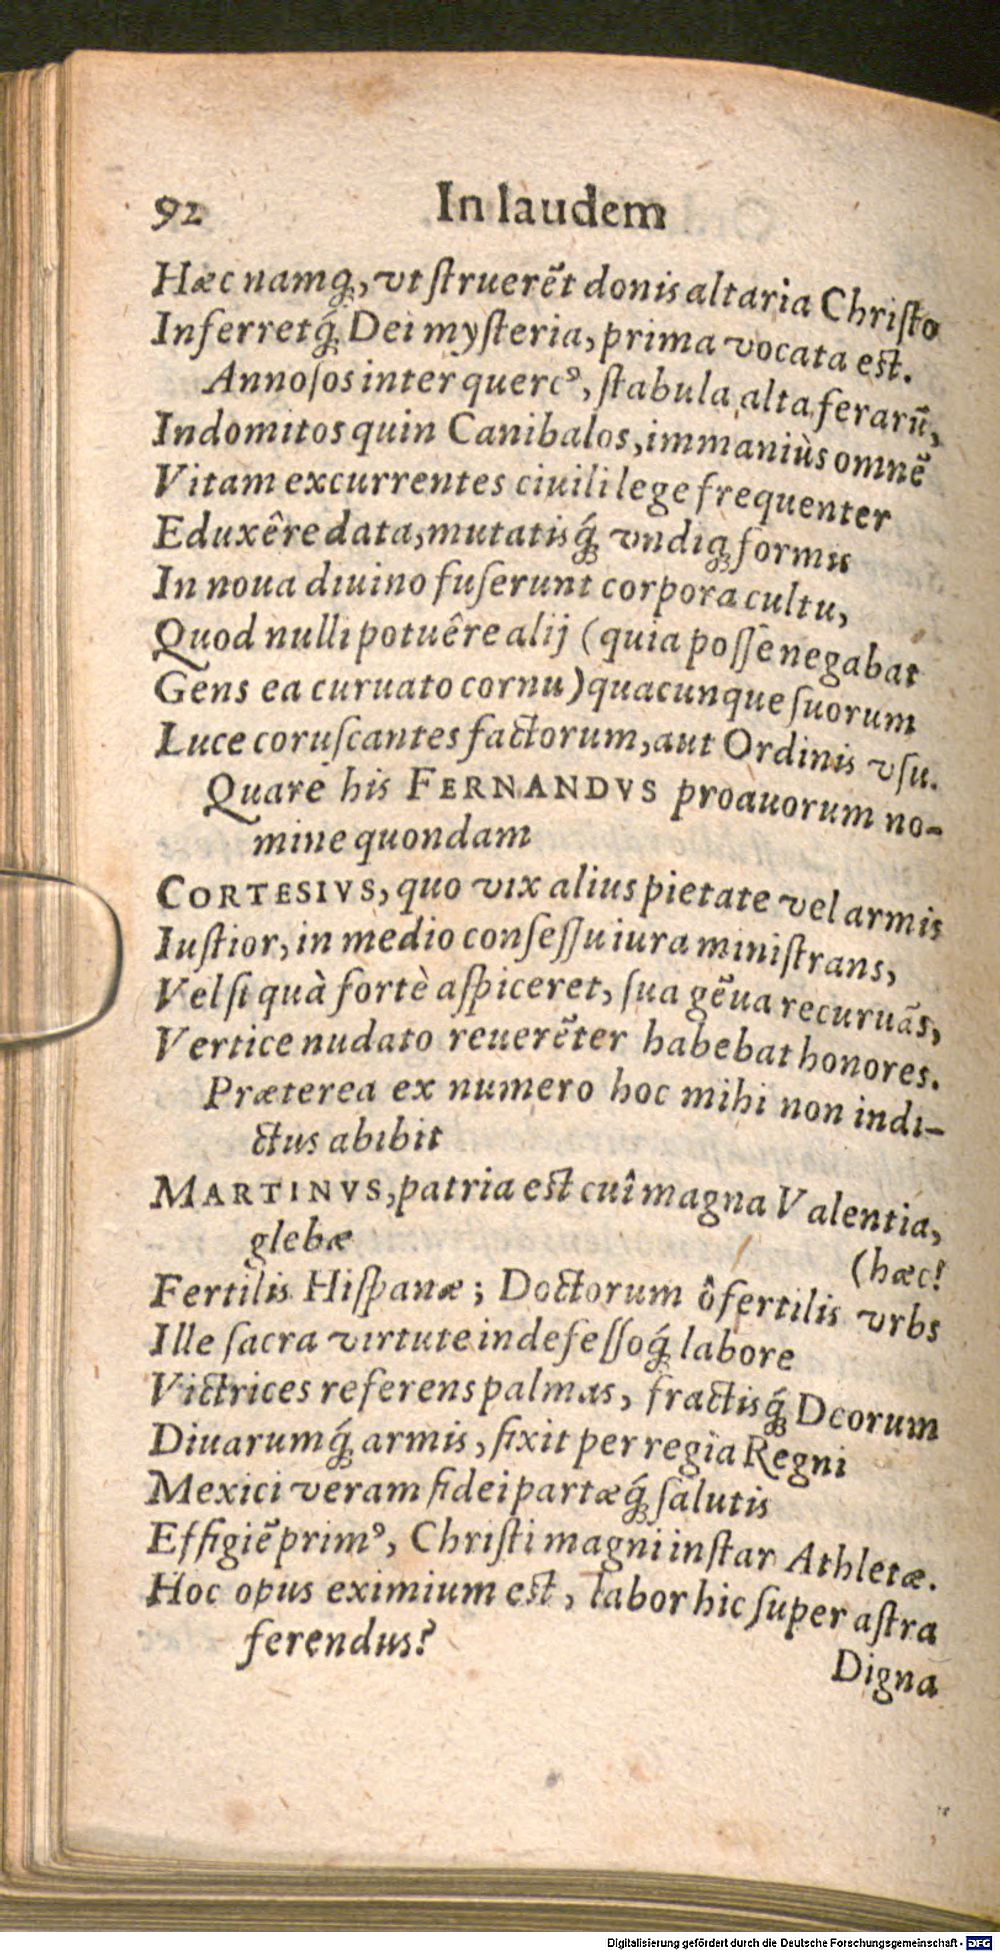 92 In laudem
Hæc namq́;, vt ſtruerẽt donis altaria Chriſto
Inferretq́; Dei myſteria, prima vocata eſt.
Annoſos inter querc⁹, ſtabula alta ferarũ,
Indomitos quin Canibalos, immaniùs omnẽ
Vitam excurrentes ciuili lege frequenter
Eduxêre data, mutatisq́; vndiq; formis
In noua diuino fuſerunt corpora cultu,
Quod nulli potuêre alij (quia poſſe negabat
Gens ea curuato cornu) quacunque ſuorum
Luce coruſcantes factorum, aut Ordinis vſu.
Quare his FERNANDVS proauorum no-
mine quondam
CORTESIVS, quo vix alius pietate vel armis
Iuſtior, in medio conſeſſu iura miniſtrans,
Vel ſi quà fortè aſpiceret, ſua gẽua recuruãs,
Vertice nudato reuerẽter habebat honores.
Præterea ex numero hoc mihi non indi-
ctus abibit
MARTINVS, patria eſt cuî magna Valentia,
glebæ
(hæc!
Fertilis Hiſpanæ; Doctorum ô fertilis vrbs
Ille ſacra virtute indefeſſoq́; labore
Victrices referens palmas, fractisq́; Deorum
Diuarumq́; armis, fixit per regia Regni
Mexici veram fidei partæq́; ſalutis
Effigiẽ prim⁹, Chriſti magni inſtar Athletæ.
Hoc opus eximium eſt, labor hic ſuper aſtra
ferendus?
Digna
Digitalisierung gefördert durch die Deutsche Forschungsgemeinschaft - DFG